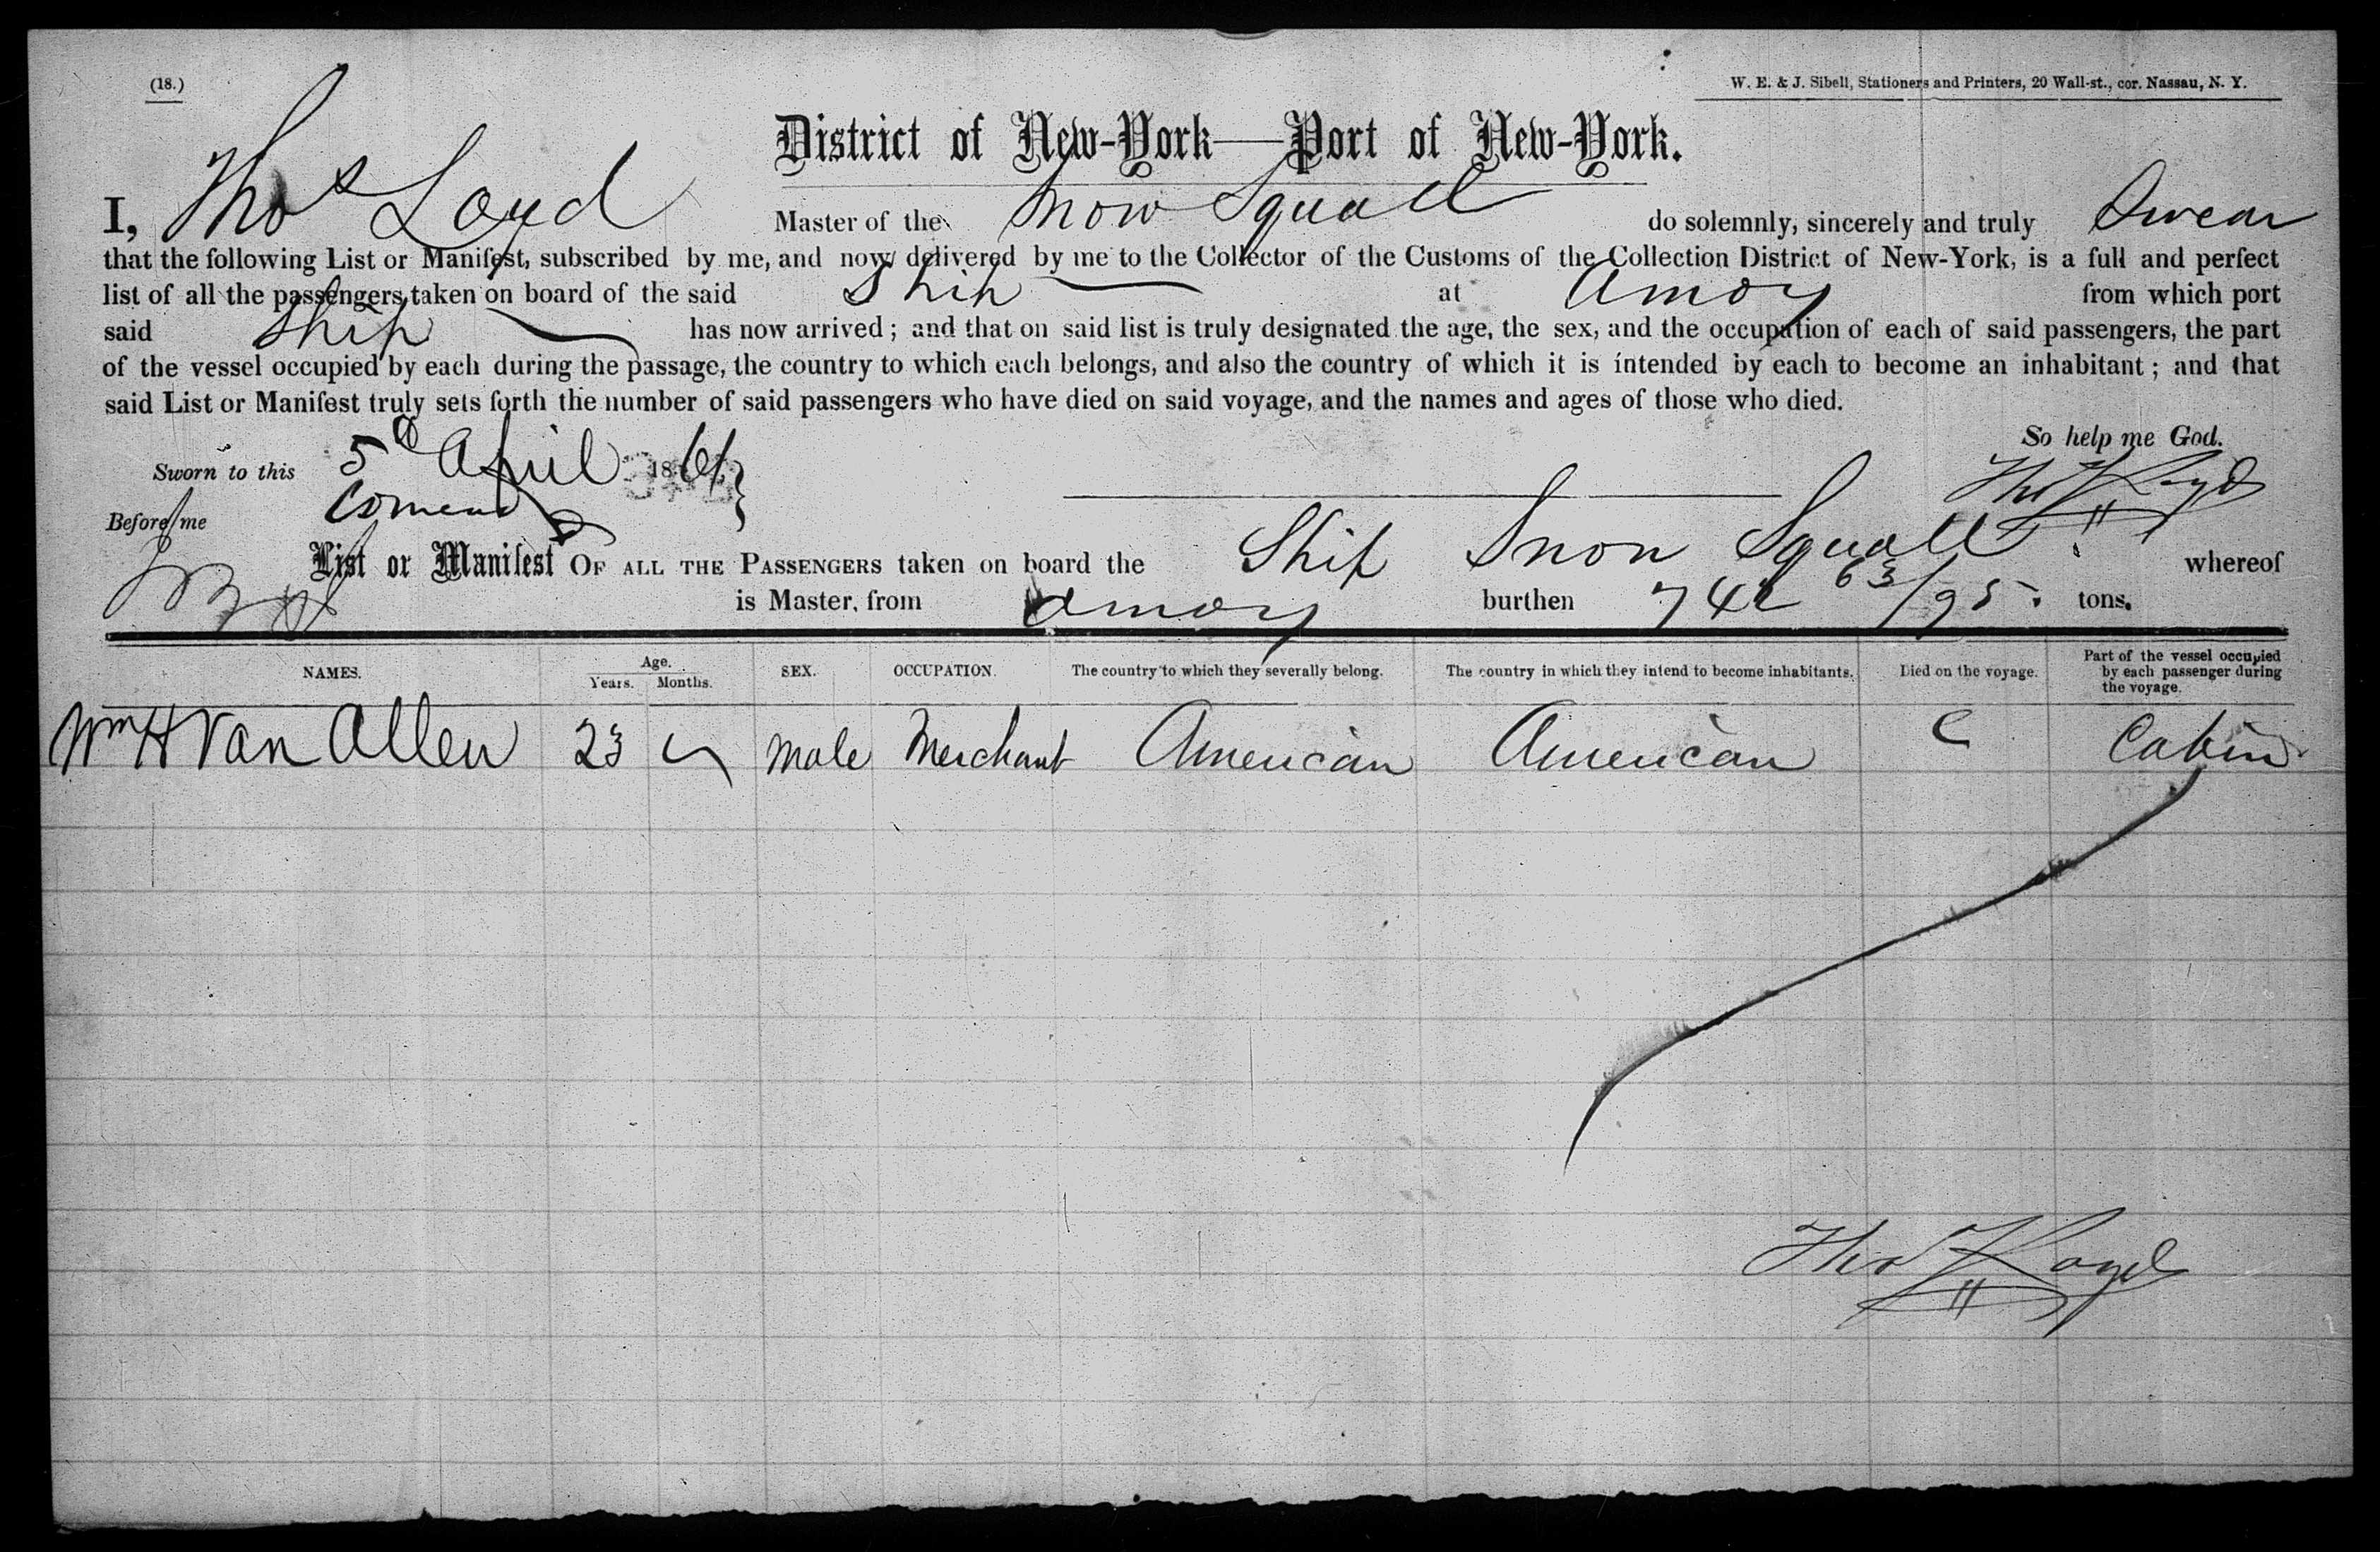 (18.)
W. E. & J. Sibell, Stationers and Printers, 20 Wall-st., cor. Nassau, N. Y.
District of New-York—Port of New-York.
I, Thos Loyd Master of the Snow Squall do solemnly, sincerely and truly Swear
that the following List or Manifest, subscribed by me, and now delivered by me to the Collector of the Customs of the Collection District of New-York, is a full and perfect
list of all the passengers taken on board of the said Ship at Amoy from which port
said Ship has now arrived; and that on said list is truly designated the age, the sex, and the occupation of each of said passengers, the part
of the vessel occupied by each during the passage, the country to which each belongs, and also the country of which it is intended by each to become an inhabitant; and that
said List or Manifest truly sets forth the number of said passengers who have died on said voyage, and the names and ages of those who died.
So help me God.
Sworn to this 5th April 1861
Thos Loyd
Before me
List or Manifest OF ALL THE PASSENGERS taken on board the Ship Snow Squall whereof
is Master, from Amoy burthen 742 63/95 tons.
NAMES. Age. Years. Months. SEX. OCCUPATION. The country to which they severally belong. The country in which they intend to become inhabitants. Died on the voyage. Part of the vessel occupied by each passenger during the voyage.
Wm H Van Allen 23 male Merchant American American Cabin
Thos Loyd